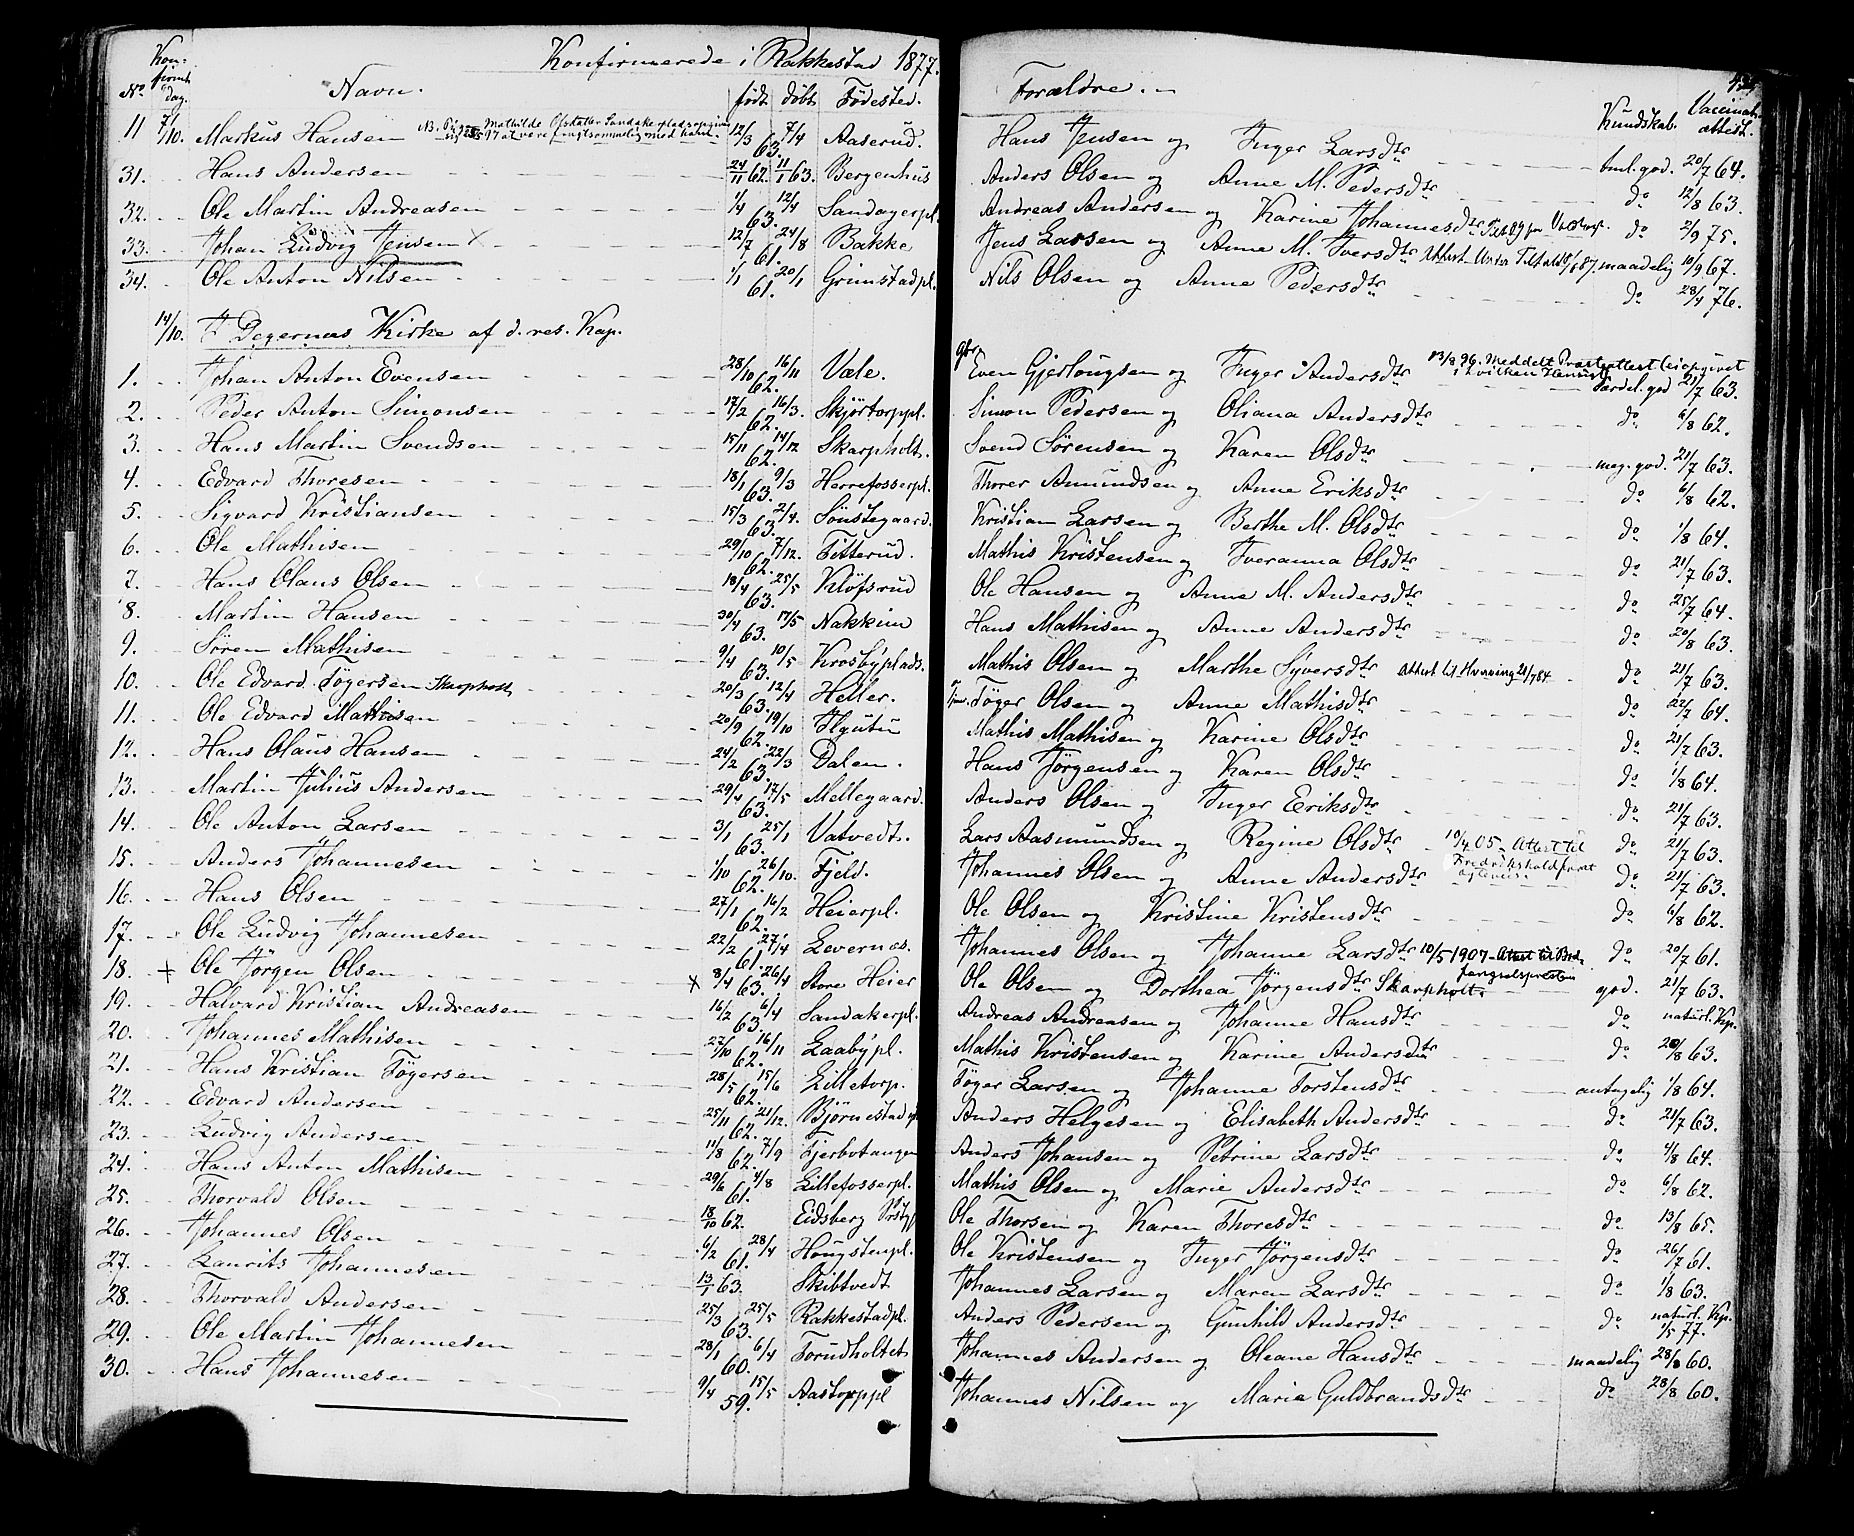 Konfirmerede i Rakkestad 1877.
No. Konfirmt. dag. Navn. født døbt Fødested. Forældre. Kundskab. Vaccinat. attest.
11 7/10. Markus Hansen 12/3 63. 7/4 Aaserud. Hans Jensen og Inger Larsdtr tml. god. 20/7 64.
31. Hans Andersen 24/11 62. 11/1 63. Bergenhus Anders Olsen og Anne M. Pedersdtr do 12/8 63.
32. Ole Martin Andreasen 1/4 63. 12/4 Sandagerpl. Andreas Andersen og Karine Johannesdtr do 2/9 75.
33. Johan Ludvig Jensen 12/7 61. 24/8 Bakke Jens Larsen og Anne M. Iversdtr maadelig 10/9 67.
34. Ole Anton Nilsen 1/1 61. 20/1 Grimstadpl. Nils Olsen og Anne Pedersdtr do 28/4 76.
14/10. I Degernæs Kirke af d. res. Kap.
1. Johan Anton Evensen 28/10 62. 16/11 Væle. Even Gjerlougsen og Inger Andersdtr særdel. god 21/7 63.
2. Peder Anton Simonsen 17/2 62. 16/3. Skjørtorppl. Simon Pedersen og Oliana Andersdtr do 6/8 62.
3. Hans Martin Svendsen 15/11 62. 14/12 Skarpholt. Svend Sørensen og Karen Olsdtr meg. god. 21/7 63.
4. Edvard Thoresen 18/1 63. 9/3 Herrefosserpl. Thorer Amundsen og Anne Eriksdtr do 6/8 62.
5. Sigvard Kristiansen 15/3 63. 2/4. Sønstegaard. Kristian Larsen og Berthe M. Olsdtr do 1/8 64.
6. Ole Mathisen 29/10 62. 7/12. Titterud. Mathis Kristensen og Iveranna Olsdtr do 21/7 63.
7. Hans Olaus Olsen 18/4 63. 25/5 Kløfsrud Ole Hansen og Anne M. Andersdtr do 25/7 64.
8. Martin Hansen 30/4 63. 17/5 Nakkim Hans Mathisen og Anne Andersdtr do 20/8 63.
9. Søren Mathisen 9/4 63. 10/5 Krosbyplads. Mathis Olsen og Marthe Syversdtr do 21/7 63.
10. Ole Edvard Tøgersen Skarpholt 20/3 63. 12/4 Heller. Tøger Olsen og Anne Mathisdtr do 22/7 64.
11. Ole Edvard Mathisen 20/9 62. 19/10 Mathis Mathisen og Karine Olsdtr do 21/7 63.
12. Hans Olaus Hansen 24/2 63. 22/3 Dalen. Hans Jørgensen og Karen Olsdtr do 1/8 64.
13. Martin Julius Andersen 29/4 63. 17/5 Mellegaard. Anders Olsen og Inger Eriksdtr do 21/7 63.
14. Ole Anton Larsen 3/1 63. 25/1 Vatvedt. Lars Aasmundsen og Regine Olsdtr 10/4 05. Attest til do 21/7 63.
15. Anders Johannesen 1/10 62. 26/10. Fjeld. Johannes Olsen og Anne Andersdtr do 21/7 63.
16. Hans Olsen 27/1 62. 16/2 Heierpl. Ole Olsen og Kristine Kristensdtr do 6/8 62.
17. Ole Ludvig Johannesen 22/2 61. 27/4 Levernæs. Johannes Olsen og Johanne Larsdtr do 20/7 61.
18. + Ole Jørgen Olsen x 8/4 63. 26/4 Store Heier Ole Olsen og Dorthea Jørgensdtr Skarpholt. god. 21/7 63.
19. Halvard Kristian Andreasen 16/2 63. 6/4 Sandakerpl. Andreas Andreasen og Johanne Hansdtr do naturl. Kp.
20. Johannes Mathisen 27/10 62. 16/11 Laabypl. Mathis Kristensen og Karine Andersdtr do 20/8 63.
21. Hans Kristian Tøgersen 28/5 62. 15/6 Lilletorp. Tøger Larsen og Johanne Torstensdtr antagelig 1/8 64.
22. Edvard Andersen 25/11 62. 21/12. Bjørnestad pl Anders Helgesen og Elisabeth Andersdtr do 21/7 63.
23. Ludvig Andersen 11/8 62. 7/9 Tjerbotangen Anders Johansen og Petrine Larsdtr do 4/8 64.
24. Hans Anton Mathisen 29/6 61. 4/8 Lillefosserpl. Mathis Olsen og Marie Andersdtr do 6/8 62.
25. Thorvald Olsen 18/10 62. Eidsberg Ole Thorsen og Karen Thoresdtr do 13/8 65.
26. Johannes Olsen 6/2 61. 28/4 Hougstenpl. Ole Kristensen og Inger Jørgensdtr do 26/7 61.
27. Laurits Johannesen 13/1 63. Skibtvedt Johannes Larsen og Maren Larsdtr do 1/8 63.
28. Thorvald Andersen 25/3 63. 25/5 Rakkestadpl. Anders Pedersen og Gunhild Andersdtr do naturl. Kp. 1/5 77.
29. Ole Martin Johannesen 28/1 60. 6/4 Torudholtet Johannes Andersen og Oleane Hansdtr maadelig 28/8 60.
30. Hans Johannesen 9/4 59. 15/5 Aastorppl Johannes Nilsen og Marie Guldbrandsdtr do 28/8 60.